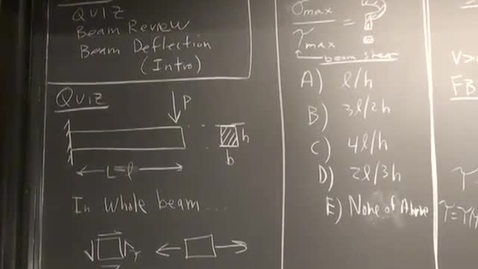 QUIZ
Beam Review
Beam Deflection
(Intro)
QUIZ
P
h
b
L=l
In Whole beam...
τ
σmax
τmax
=
?
beam shear
A) l/h
B) 3l/2h
C) 4l/h
D) 2l/3h
E) None of Above
V>
FB